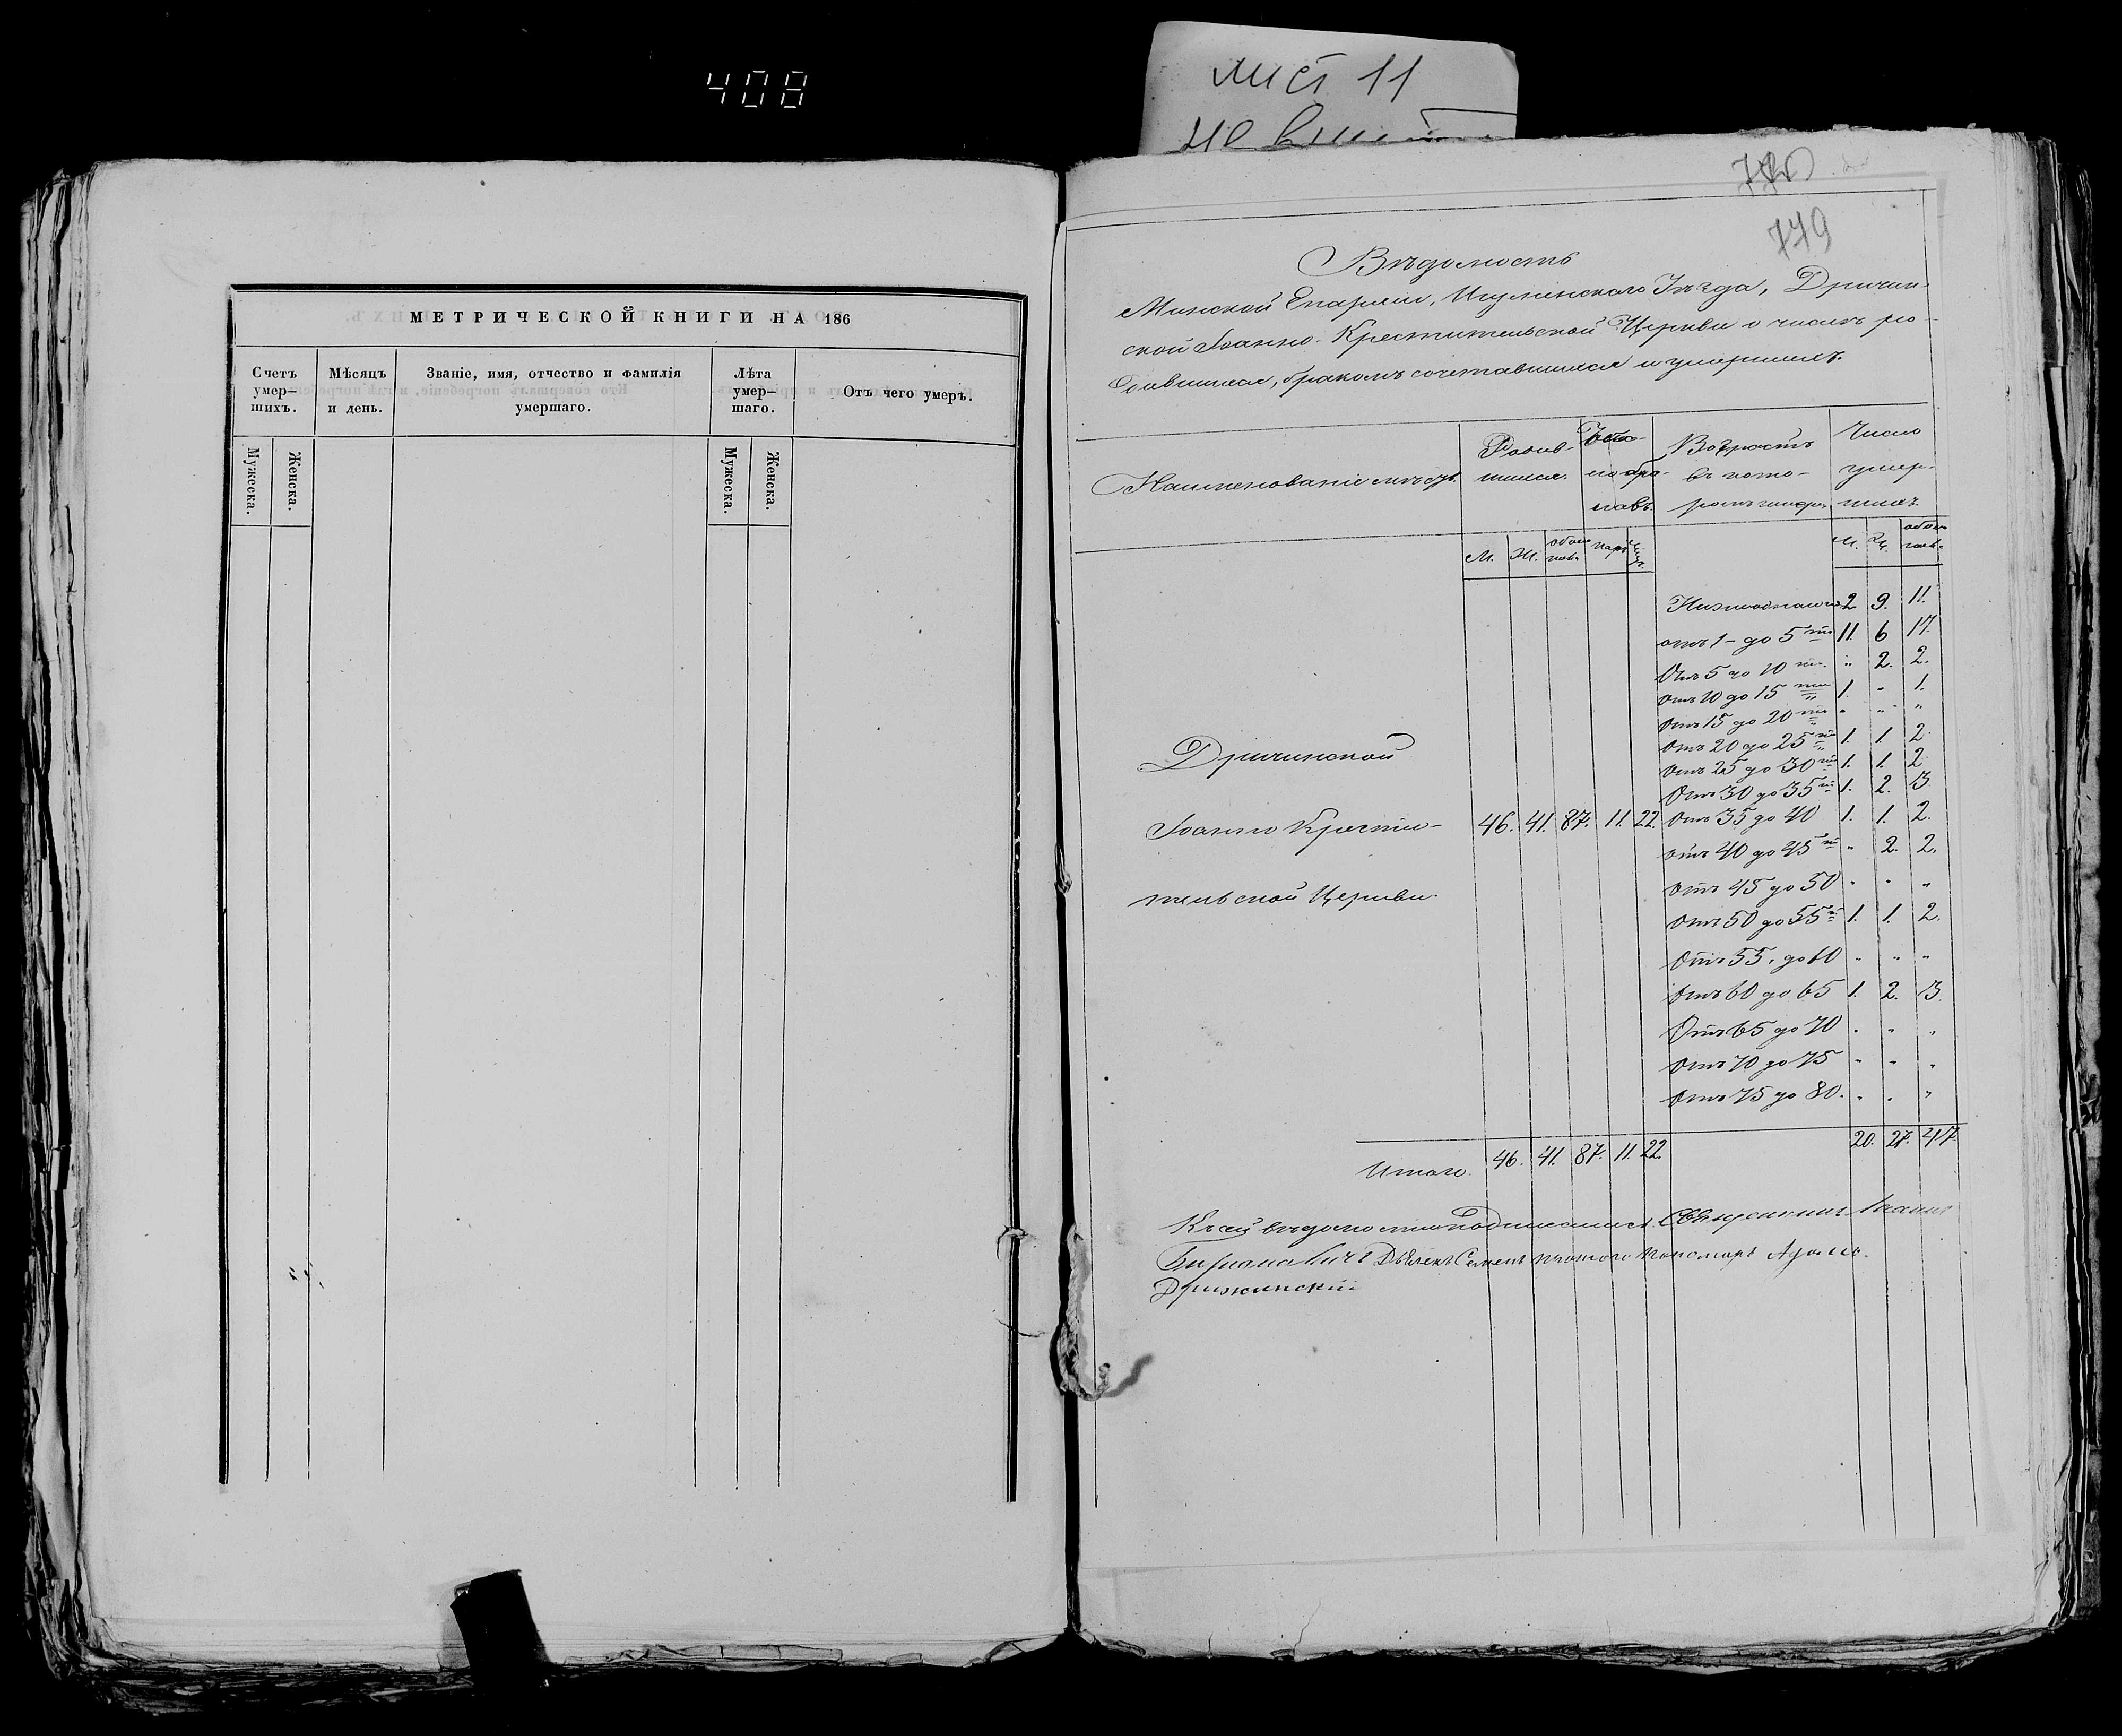 408
лист 11
МЕТРИЧЕСКОЙ КНИГИ НА 186
Счетъ умер-
шихъ.
Мѣсяцъ
и день.
Званіе, имя, отчество и фамилія
умершаго.
Лѣта
умер-
шаго.
Отъ чего умеръ.
Мужеска.
Женска.
Мужеска.
Женска.
780
779
Вѣдомость
Минской Епархіи, Игуменскаго Уѣзда, Дричин-
ской Іоанно-Крестительской Церкви о числѣ ро-
дившихся, бракомъ сочетавшихся и умершихъ.
Наименованіе мѣстъ.
Родив-
шихся.
Число
браковъ.
Возрастъ
въ кото-
ромъ умерли
Число
умер-
шихъ.
М. Ж. обоего пола паръ лицъ.
М. Ж. обоего пола
2 9. 11.
отъ 1- до 5 ти 11. 6 17.
Отъ 5 до 10 ти. " 2. 2.
Отъ 10 до 15 ти 1. " 1.
Отъ 15 до 20 ти " " "
Отъ 20 до 25 ти 1. 1. 2
Отъ 25 до 30 ти 1. 1. 2
Отъ 30 до 35 ти 1. 2. 3
Дричинской
Іоанно Крести- 46. 41. 87. 11. 22. Отъ 35 до 40 1. 1. 2.
отъ 40 до 45 ти " 2. 2.
тельской Церкви.
Отъ 45 до 50 " " "
Отъ 50 до 55 ти 1. 1. 2.
Отъ 55. до 60 " " "
Отъ 60 до 65 1. 2. 3.
Отъ 65 до 70 " " "
Отъ 70 до 75 " " "
Отъ 75 до 80. " " "
Итого. 46. 41. 87. 11. 22. 20. 27. 47
Къ сей вѣдомости подписались. Священникъ
Дьячекъ Семенъ Пономарь Адамъ